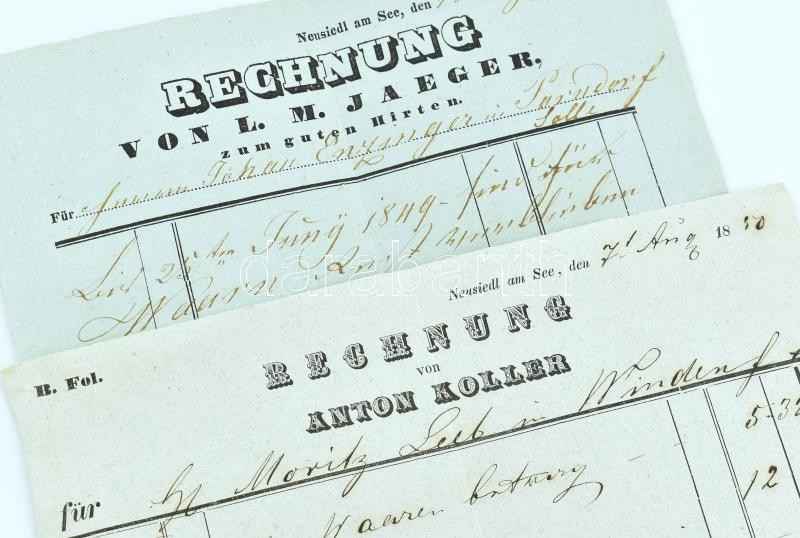 Neusiedl am See, den
RECHNUNG
VON L. M. JAEGER,
zum guten Hirten.
Für Johan Enzinger in Parndorf
Solle
25 Juny 1849 für
Waaren verblieben
darabanth
Neusiedl am See, den 7t Aug 1850
B. Fol.
RECHNUNG
von
ANTON KOLLER
für H Moritz Leeb in Winden
Waaren betrag
5-32
12